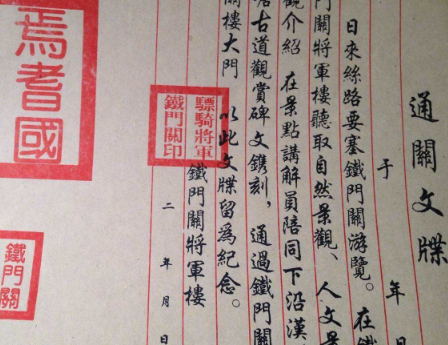 通關文牒
于 年
日來絲路要塞鐵門關游覽。在鐵
門關將軍樓聽取自然景觀、人文景
觀介紹 在景點講解員陪同下沿漢
古道觀賞碑文鐫刻，通過鐵門關
關樓大門 以此文牒留為紀念。
鐵門關將軍樓
二 年 月 日
驃騎將軍
鐵門關印
焉耆國
鐵門關